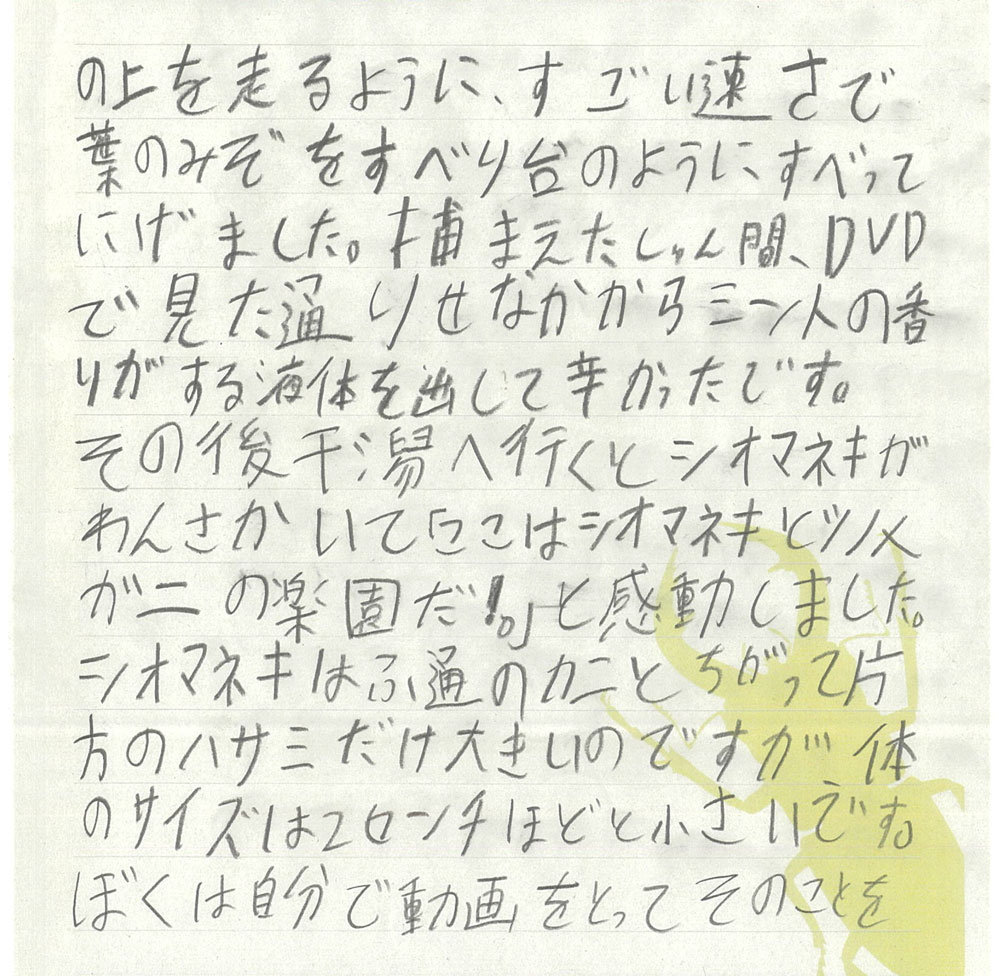 の上を走るように、すごい速さで
葉のみぞをすべり台のようにすべって
にげました。捕まえたしゅん間、DVD
で見た通りせなかからミントの香
りがする液体を出して辛かったです。
その後干潟へ行くとシオマネキが
わんさかいて「ここはシオマネキとツノメ
ガニの楽園だ!。」と感動しました。
シオマネキはふ通のカニとちがって片
方のハサミだけ大きいのですが体
のサイズは2センチほどと小さいです。
ぼくは自分で動画をとってそのことを